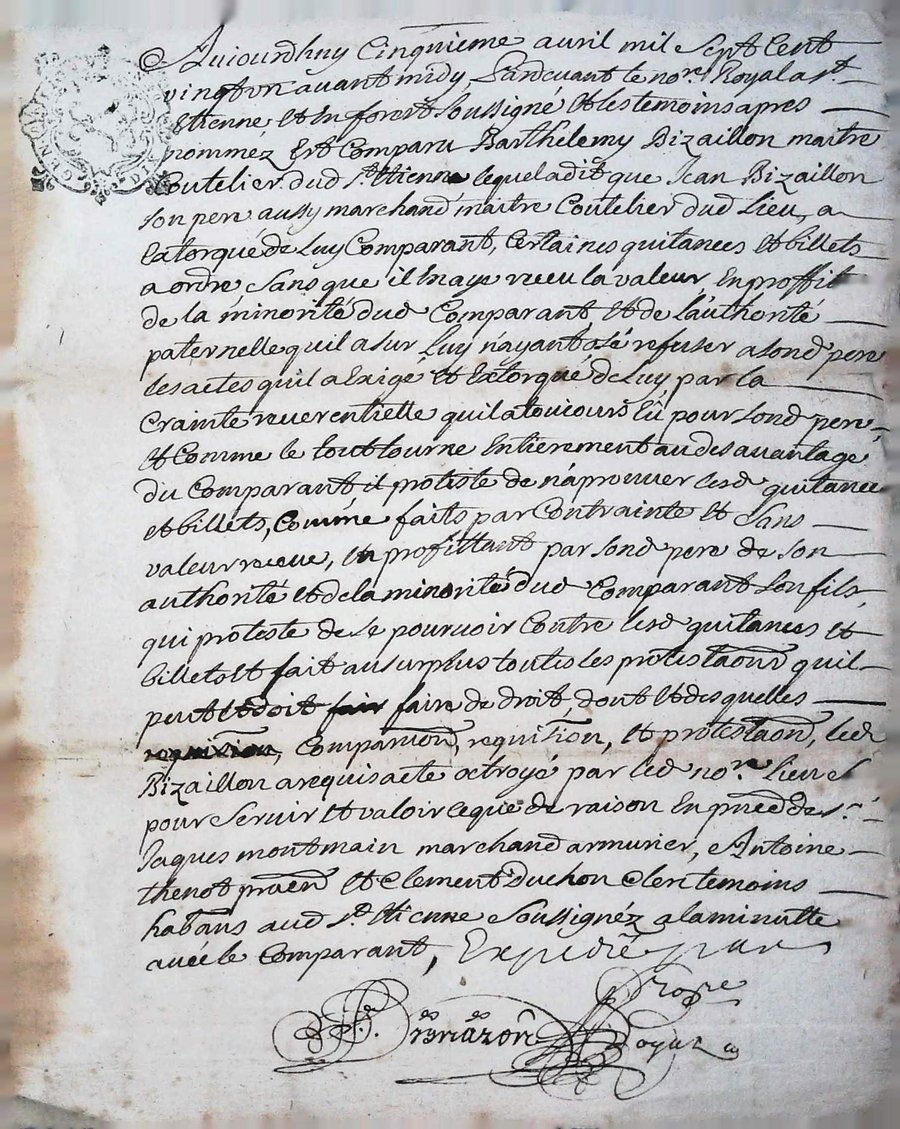 Aujourdhuy Cinquieme avril mil Sept Cent
vingt un avant midy, Pardevant le nore. Royal a St.
Estienne et En forest Soussigné et les temoins apres
nommez Est Comparu Barthelemy Bizaillon maitre
Coutelier dud St. Etienne lequel a dit que Jean Bizaillon
Son pere aussy marchand maitre Coutelier dud Lieu, a
Extorqué de Luy Comparant, Certaines quitances et billets
a ordre, Sans que il En aye receu la valeur, En proffit
de la minorité dud Comparant et de Lauthorité
paternelle quil a sur Luy n'ayant osé refuser a sond pere
les actes quil a Exigé et Extorqué de Luy par la
Crainte reverentielle quil a toujours Eû pour sond pere,
et Comme le tout tourne Entierement au desavantage
du Comparant il proteste de n'aprouver lesd quitances
et billets, Comme faits par Contrainte et Sans
valeur receue, et profittant par sond pere de son
authorité et de la minorité dud Comparant Son fils,
qui proteste de Se pourvoir Contre lesd quitances et
billets et fait au surplus toutes les protestaons quil
peut et doit fair faire de droit, dont et desquelles
Comparuon, requision, et protestaon, led
Bizaillon a requis acte octroyé par led nore. Lieu
pour Servir et valoir ce que de raison En pnce de Sr.
Jaques montmain marchand armurier, Antoine
thenot pratn et Clement Duchon Clerc temoins
habans aud St. Etienne Soussignéz a la minutte
avec le Comparant, Expedié par
nore
Royal